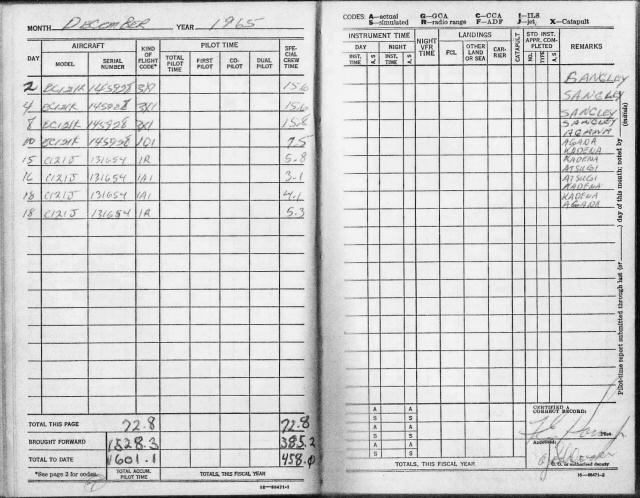 MONTH DECEMBER YEAR 1965
DAY AIRCRAFT KIND OF FLIGHT CODE* PILOT TIME SPECIAL CREW TIME
MODEL SERIAL NUMBER TOTAL PILOT TIME FIRST PILOT CO-PILOT DUAL PILOT
2 EC121K 145928 3X1 15.6
4 EC121K 145928 3X1 15.6
8 EC121K 145928 3X1 15.8
10 EC121K 145928 1O1 7.5
15 C121J 131654 1R 5.8
16 C121J 131654 1A1 3.1
18 C121J 131654 1A1 4.1
18 C121J 131654 1R 5.3
TOTAL THIS PAGE 72.8 72.8
BROUGHT FORWARD 1528.3 385.2
TOTAL TO DATE 1601.1 458.0
*See page 2 for codes. TOTAL ACCUM. PILOT TIME TOTALS, THIS FISCAL YEAR
16—66471-1
CODES: A—actual G—GCA C—CCA I—ILS
S—simulated R—radio range F—ADF J—jet X—Catapult
INSTRUMENT TIME NIGHT VFR TIME LANDINGS CATAPULT STD INST. APPR. COMPLETED REMARKS
DAY NIGHT FCL OTHER LAND OR SEA CARRIER NO. TYPE A.S
INST. TIME A.S INST. TIME A.S
SANGLEY
SANGLEY
SANGLEY
SANGLEY
AGANA
AGADA
KADENA
KADENA
ATSUGI
ATSUGI
KADENA
KADENA
AGANA
Pilot-time report submitted through last (or ) day of this month; noted by (initials)
A A
S S
A A
S S
A A
S S
CERTIFIED A CORRECT RECORD:
Pilot
Approved:
C. O. or authorized deputy
TOTALS, THIS FISCAL YEAR
16—66471-2